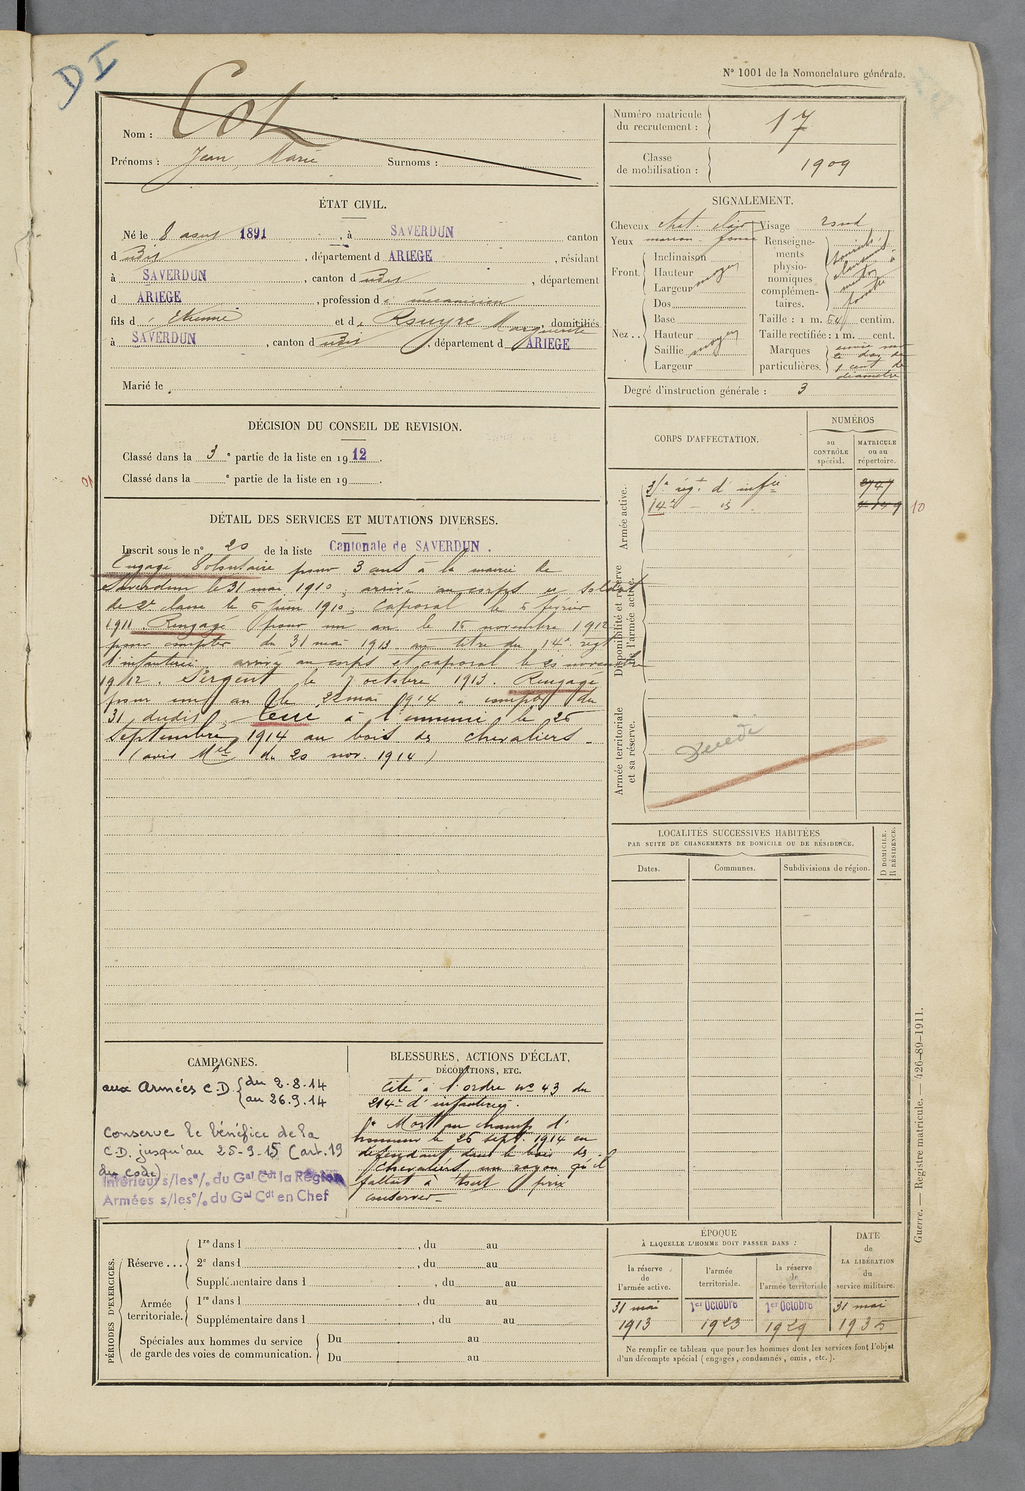 DI
N° 1001 de la Nomenclature générale.
Nom : Cot
Prénoms : Jean Marie Surnoms :
Numéro matricule du recrutement : 17
Classe de mobilisation : 1909
ÉTAT CIVIL.
Né le 8 1891, à SAVERDUN canton
d udit, département d ARIEGE, résidant
à SAVERDUN, canton d udit, département
d ARIEGE, profession d e mécanicien
fils d Etienne et d e Marguerite domiciliés
à SAVERDUN, canton d udit, département d ARIEGE
Marié le
SIGNALEMENT.
Cheveux chat. clair Visage rond
Yeux marron foncé
Front. Inclinaison
Hauteur moyen
Largeur
Nez .. Dos
Base
Hauteur
Saillie moyen
Largeur
Renseignements physionomiques complémentaires.
Taille : 1 m. 64 centim.
Taille rectifiée : 1 m. cent.
Marques particulières.
diamètre
Degré d'instruction générale : 3
DÉCISION DU CONSEIL DE REVISION.
Classé dans la 3e partie de la liste en 1912.
Classé dans la e partie de la liste en 19
CORPS D'AFFECTATION.
NUMÉROS
au CONTRÔLE spécial.
MATRICULE ou au répertoire.
Armée active.
régt d'infie
14e - id
10
Disponibilité et réserve de l'armée active.
Armée territoriale et sa réserve.
Décédé
DÉTAIL DES SERVICES ET MUTATIONS DIVERSES.
Inscrit sous le n° 20 de la liste Cantonale de SAVERDUN.
Engagé Volontaire pour 3 ans à la mairie de
Saverdun le 31 mai 1910, arrivé au corps et soldat
de 2e classe le 5 juin 1910, Caporal le 5 février
1911. Rengagé pour un an le 15 novembre 1912
pour compter du 31 mai 1913 au titre du 14e régt
d'infanterie arrivé au corps et caporal le 20 novembre
1912. Sergent le 7 octobre 1913. Rengagé
pour un an le 22 mai 1914 à compter du
31 dudit. Tué à l'ennemi le 26
Septembre 1914 au bois des chevaliers -
(avis Mel du 20 nov. 1914)
LOCALITÉS SUCCESSIVES HABITÉES
PAR SUITE DE CHANGEMENTS DE DOMICILE OU DE RÉSIDENCE.
Dates.
Communes.
Subdivisions de région.
D DOMICILE.
R RÉSIDENCE.
CAMPAGNES.
aux Armées C.D. du 2.8.14
au 26.9.14
Conserve le bénéfice de la
C.D. jusqu'au 25-9-15 (art. 19
du code)
Intérieur s/les o/ du Gal Cdt la Région
Armées s/les o/ du Gal Cdt en Chef
BLESSURES, ACTIONS D'ÉCLAT,
DÉCORATIONS, ETC.
Cité à l'ordre n° 43 du
214e d'infanterie.
Mort au champ d'
honneur le 26 sept. 1914 en
défendant dans le bois des
chevaliers un qu'il
fallait à tout prix
conserver -
PÉRIODES D'EXERCICES.
Réserve ... 1re dans l , du au
2e dans l , du au
Supplémentaire dans l , du au
Armée territoriale. 1re dans l , du au
Supplémentaire dans l , du au
Spéciales aux hommes du service de garde des voies de communication. Du au
Du au
ÉPOQUE
À LAQUELLE L'HOMME DOIT PASSER DANS :
la réserve de l'armée active.
l'armée territoriale.
la réserve de l'armée territoriale
DATE de LA LIBÉRATION du service militaire.
31 mai 1913
1er Octobre 1923
1er Octobre 1929
31 mai 1935
Ne remplir ce tableau que pour les hommes dont les services font l'objet
d'un décompte spécial (engagés, condamnés, omis, etc.).
Guerre. — Registre matricule. — 426-89-1911.